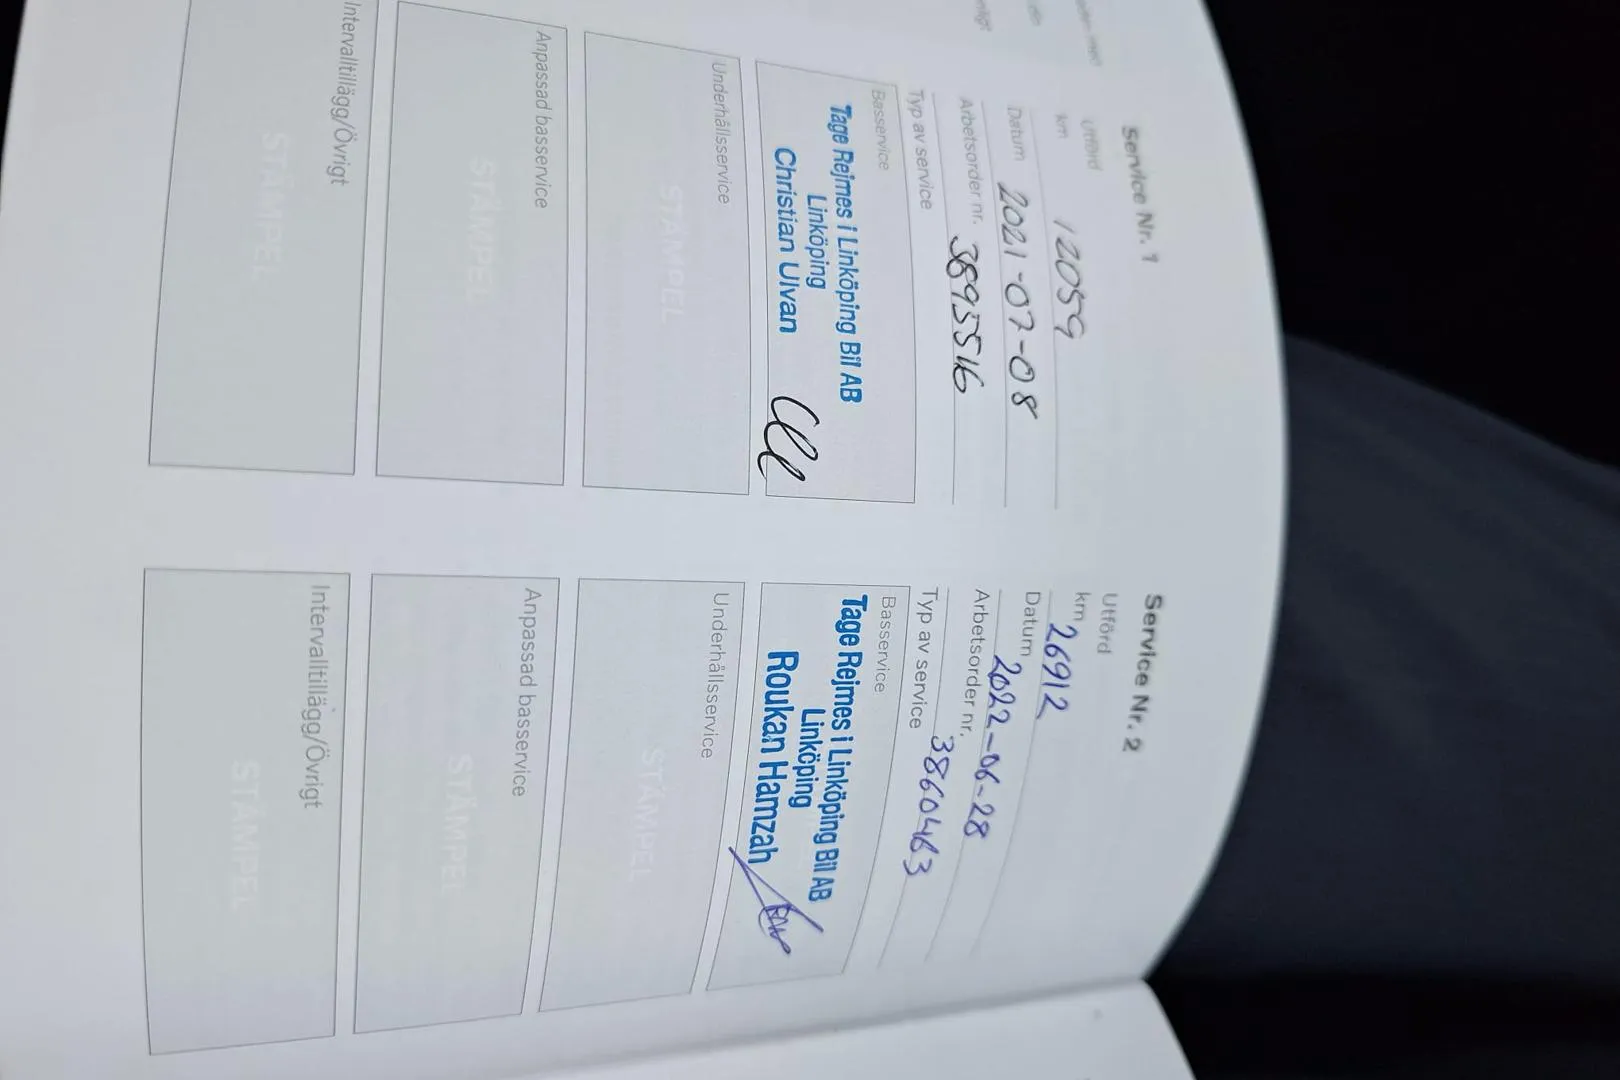 Service Nr. 1
Utförd
km 12059
Datum 2021-07-08
Arbetsorder nr. 3895516
Typ av service
Basservice
Tage Rejmes i Linköping Bil AB
Linköping
Christian Ulvan
Underhållsservice
STÄMPEL
Anpassad basservice
STÄMPEL
Intervalltillägg/Övrigt
STÄMPEL
Service Nr. 2
Utförd
km 26912
Datum 2022-06-28
Arbetsorder nr. 3860463
Typ av service
Basservice
Tage Rejmes i Linköping Bil AB
Linköping
Roukan Hamzah
Underhållsservice
STÄMPEL
Anpassad basservice
STÄMPEL
Intervalltillägg/Övrigt
STÄMPEL